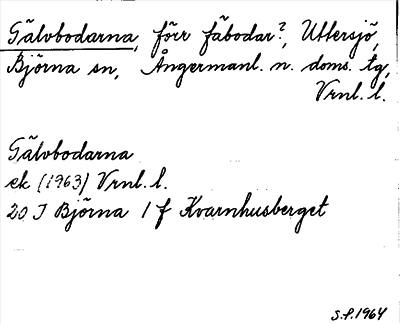 Gälvbodarna, förr fäbodar?, Uttersjö,
Björna sn, Ångermanl. n. doms. tg,
Vrnl. l.
Gälvbodarna
ek (1963) Vrnl. l.
20 J Björna 1 f Kvarnhusberget
S.P. 1964